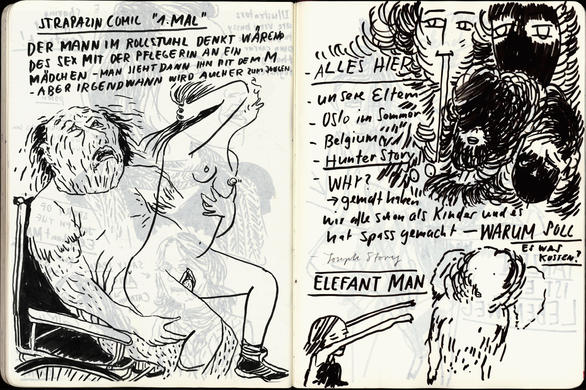 STRAPAZIN COMIC "1.MAL"
DER MANN IM ROLLSTUHL DENKT WÄREND
DES SEX MIT DER PFLEGERIN AN EIN
MÄDCHEN - MAN SIEHT DANN IHN MIT DEM M
- ABER IRGENDWANN WIRD AUCH ER ZUM JUNGEN
- ALLES HIER
- unsere Eltern
- Oslo im Sommer
- Belgium
- Hunter Story
WHY?
→ gemalt haben
wir alle schon als Kinder und es
hat Spass gemacht - WARUM SOLL
ES WAS
KOSTEN?
- Joseph Story
ELEFANT MAN